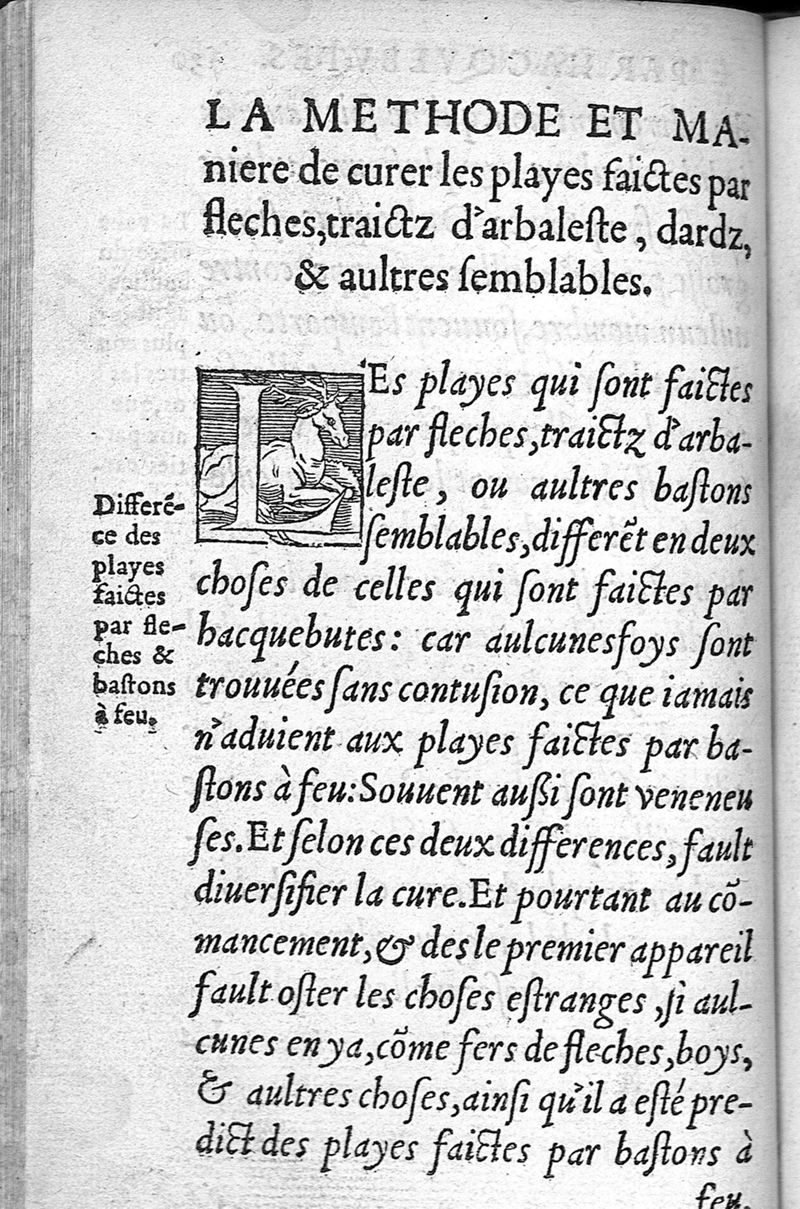 LA METHODE ET MA-
niere de curer les playes faictes par
fleches,traictz d'arbaleſte, dardz,
& aultres ſemblables.
LEs playes qui ſont faictes
par fleches,traictz d'arba-
leſte, ou aultres baſtons
ſemblables,differẽt en deux
choſes de celles qui ſont faictes par
hacquebutes: car aulcunesfoys ſont
trouuées ſans contuſion, ce que iamais
n'aduient aux playes faictes par ba-
ſtons à feu:Souuent auſſi ſont veneneu
ſes.Et ſelon ces deux differences,fault
diuerſifier la cure.Et pourtant au cõ-
mancement,& des le premier appareil
fault oſter les choſes eſtranges,ſi aul-
cunes en ya,cõme fers de fleches,boys,
& aultres choſes,ainſi qu'il a eſté pre-
dict des playes faictes par baſtons à
feu.
Differẽ-
ce des
playes
faictes
par fle-
ches &
baſtons
à feu.